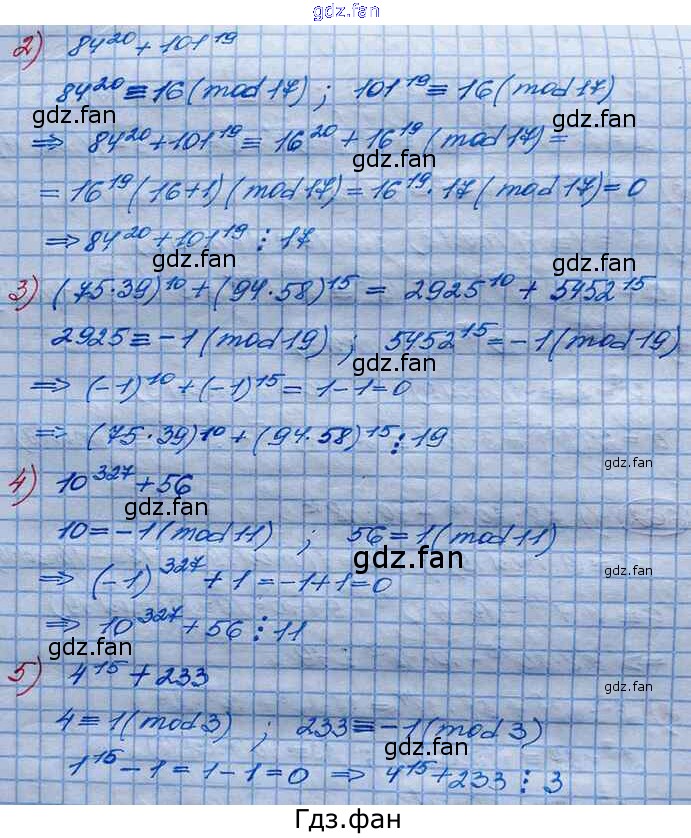 gdz.fan
2) 84²⁰ + 101¹⁹
84²⁰ ≡ 16 (mod 17) ; 101¹⁹ ≡ 16 (mod 17)
gdz.fan gdz.fan
⇒ 84²⁰ + 101¹⁹ ≡ 16²⁰ + 16¹⁹ (mod 17) =
gdz.fan
= 16¹⁹ (16+1) (mod 17) = 16¹⁹ · 17 (mod 17) = 0
⇒ 84²⁰ + 101¹⁹ ⋮ 17
gdz.fan gdz.fan
3) (75·39)¹⁰ + (94·58)¹⁵ = 2925¹⁰ + 5452¹⁵
2925 ≡ -1 (mod 19) ; 5452¹⁵ = -1 (mod 19)
gdz.fan gdz.fan
⇒ (-1)¹⁰ + (-1)¹⁵ = 1-1=0
⇒ (75·39)¹⁰ + (94·58)¹⁵ ⋮ 19
gdz.fan
4) 10³²⁷ + 56
gdz.fan
10 = -1 (mod 11) ; 56 = 1 (mod 11)
gdz.fan gdz.fan
⇒ (-1)³²⁷ + 1 = -1+1=0
gdz.fan
⇒ 10³²⁷ + 56 ⋮ 11
gdz.fan
5) 4¹⁵ + 233
gdz.fan
4 ≡ 1 (mod 3) ; 233 ≡ -1 (mod 3)
gdz.fan gdz.fan
1¹⁵ - 1 = 1-1=0 ⇒ 4¹⁵ + 233 ⋮ 3
Гдз.фан